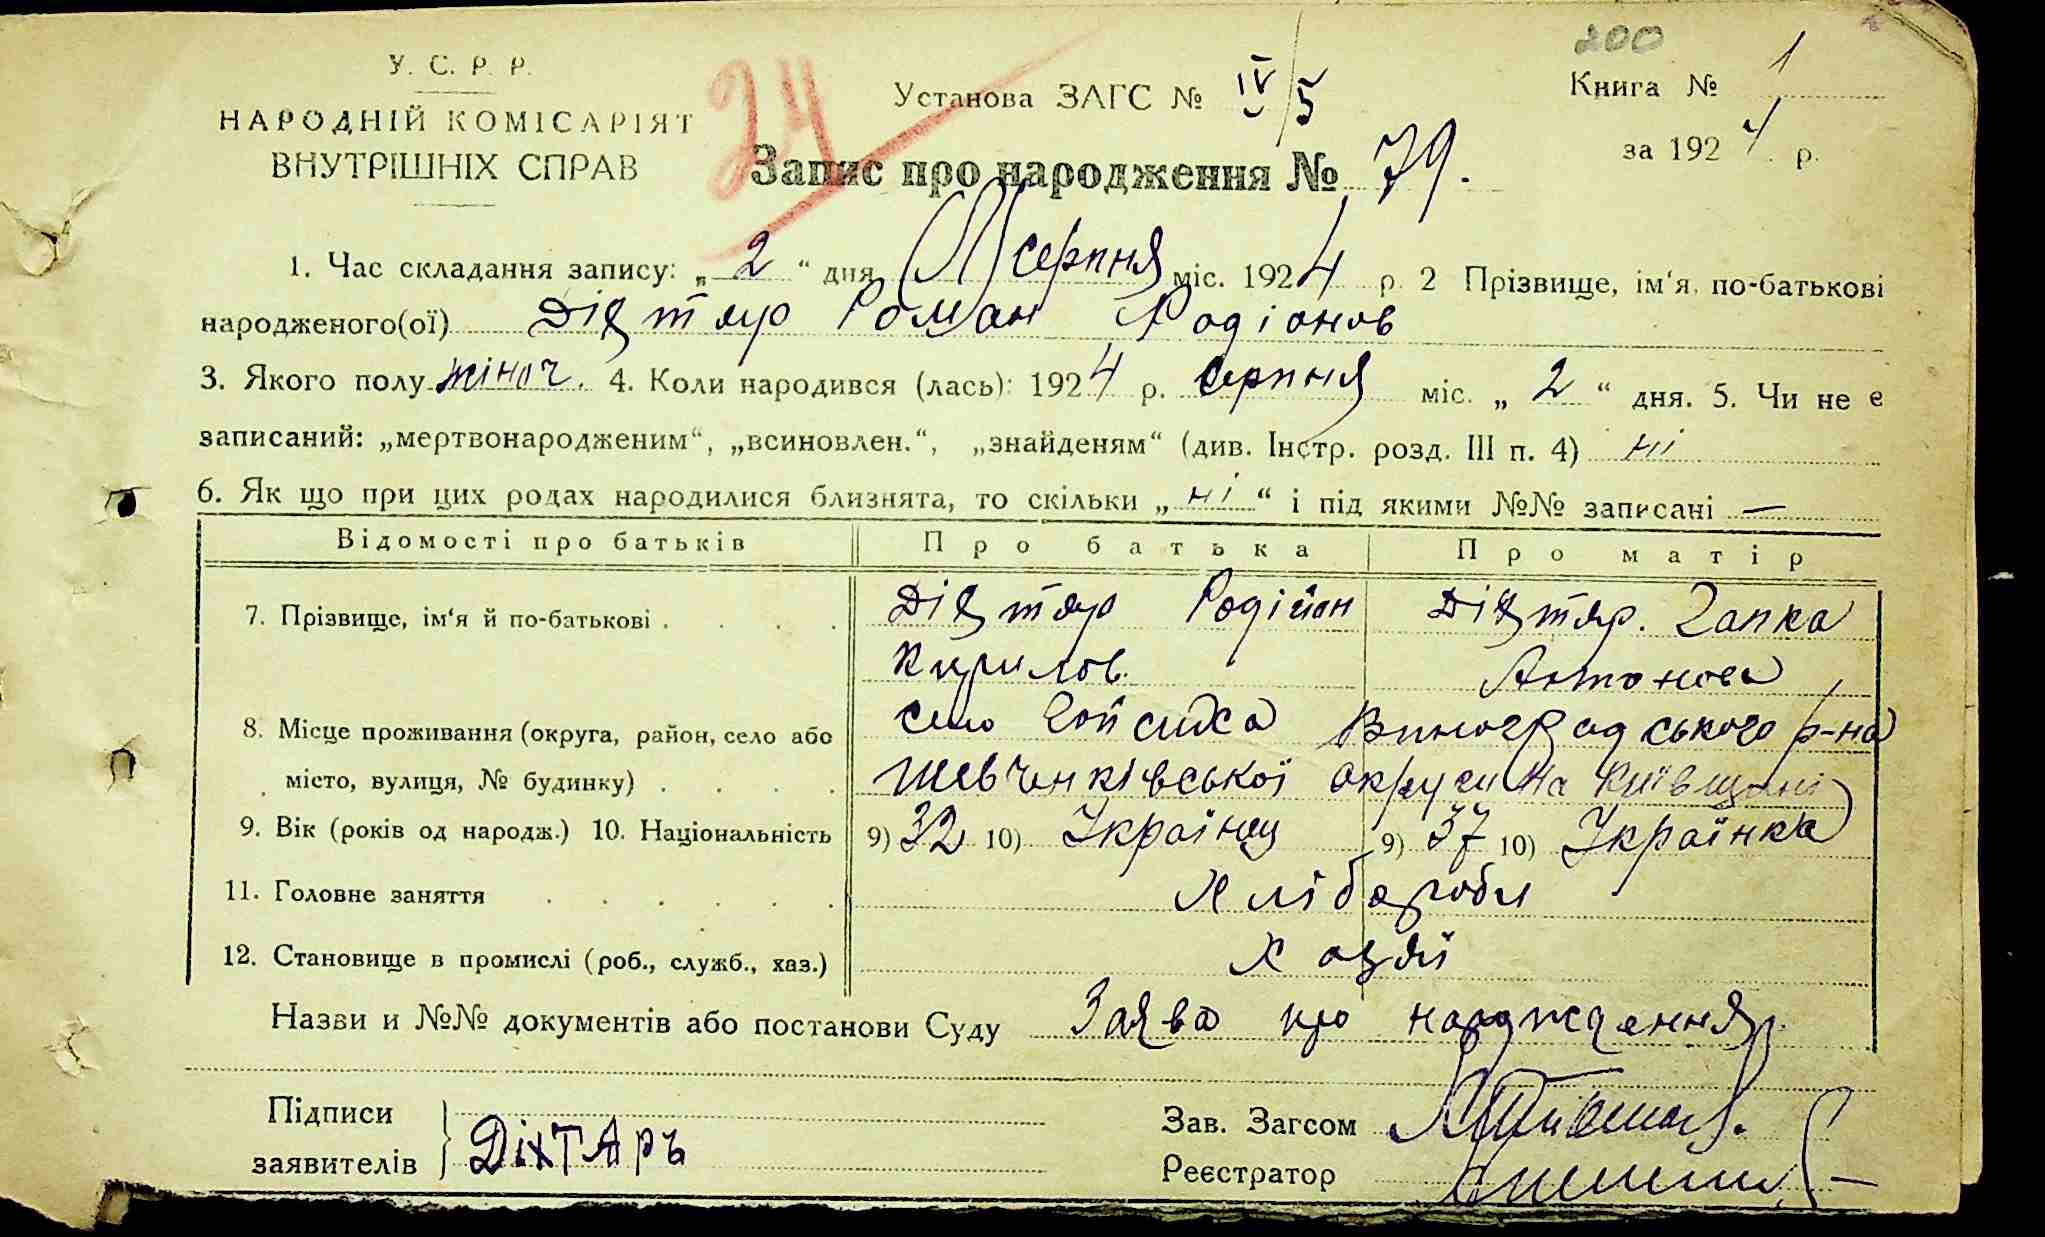 200
У. С. Р. Р.
НАРОДНІЙ КОМІСАРІЯТ
ВНУТРІШНІХ СПРАВ
24
Установа ЗАГС № IV/5
Книга № 1
за 1924 р.
Запис про народження № 79.
1. Час складання запису: „2“ дня серпня міс. 1924 р. 2 Прізвище, ім‘я, по-батькові
народженого(ої) Дігтяр Роман Родіонов
3. Якого полу жіноч. 4. Коли народився (лась): 1924 р. серпня міс. „2“ дня. 5. Чи не є
записаний: „мертвонародженим“, „всиновлен.“, „знайденям“ (див. Інстр. розд. III п. 4) ні
6. Як що при цих родах народилися близнята, то скільки „ні“ і під якими №№ записані —
Відомості про батьків Про батька Про матір
7. Прізвище, ім‘я й по-батькові . . . . Дігтяр Родійон Дігтяр. Гапка
Кирилов. Антонова
8. Місце проживання (округа, район, село або село Виноградського р-на
місто, вулиця, № будинку) . . . . Шевченківської округи на Київщині
9. Вік (років од народж.) 10. Національність 9) 32 10) Українец 9) 37 10) Українка
11. Головне заняття . . . . . Хлібороби
12. Становище в промислі (роб., служб., хаз.)
Назви и №№ документів або постанови Суду Заява про народження.
Підписи
заявителів ДіхТАръ
Зав. Загсом
Реєстратор